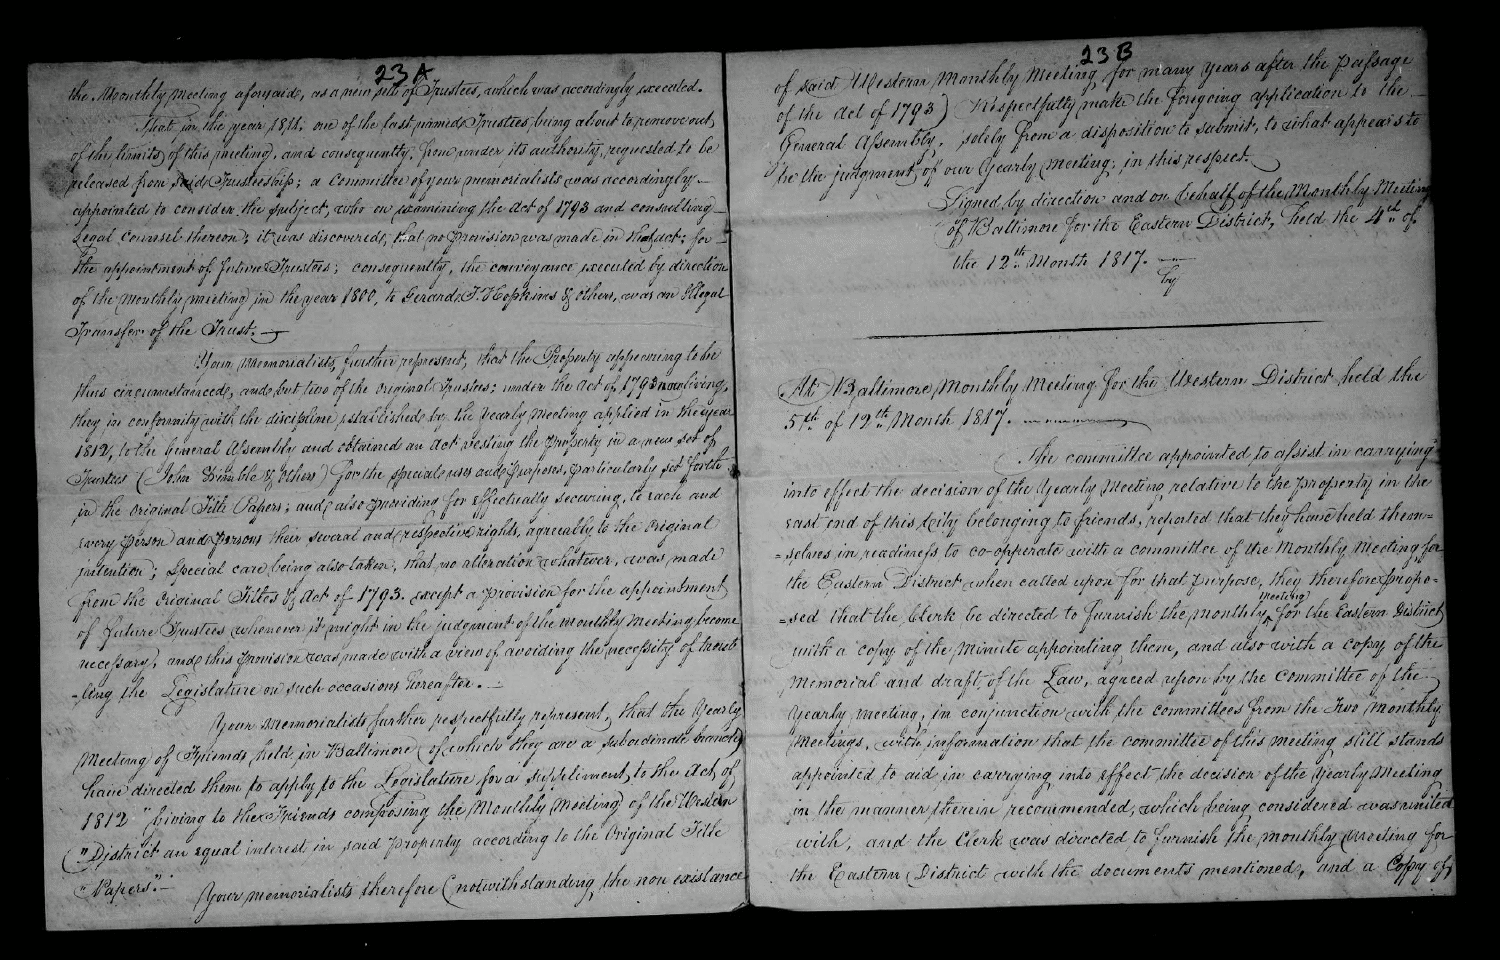 23A
the Monthly Meeting aforesaid, as a new sett of Trustees, which was accordingly executed.
That in the year 1811. one of the last named Trustees, being about to remove out
of the limits of this meeting, and consequently, from under its authority, requested to be
released from said Trusteeship; a committee of your memorialists was accordingly
appointed to consider the subject, who on examining the Act of 1793 and consulting
Legal Counsel thereon; it was discovered, that no provision was made in that act; for
the appointment of future Trustees; consequently, the conveyance executed by direction
of the Monthly meeting in the year 1800, to Gerard T. Hopkins & others, was an Illegal
Transfer of the Trust.
Your Memorialists, further represent, that the Property appearing to be
thus circumstanced, and but two of the original Trustees; under the Act of 1793 now living,
they in conformity with the discipline established by the Yearly Meeting applied in the year
1812, to the General Assembly and obtained an Act vesting the property in a new set of
Trustees (John Trimble & others) for the special uses and purposes, particularly set forth
in the original Title Papers; and also providing for effectually securing, to each and
every person and persons their several and respective rights, agreeably to the original
intention; Special care being also taken, that no alteration whatever, was made
from the original Titles & Act of 1793. except a provision for the appointment
of future Trustees whenever it might in the judgment of the monthly Meeting become
necessary, and this provision was made with a view of avoiding the necessity of troub
-ling the Legislature on such occasions hereafter.
Your Memorialists further respectfully represent, that the Yearly
Meeting of Friends held in Baltimore (of which they are a subordinate branch)
have directed them to apply to the Legislature for a suppliment, to the Act, of
1812 "Giving to the Friends composing the Monthly Meeting of the Western
"District an equal interest in said property according to the Original Title
"Papers".
Your memorialists therefore (notwithstanding the non existance
23B
of said Western Monthly Meeting, for many years after the passage
of the Act of 1793) Respectfully make the foregoing application to the
General Assembly, solely from a disposition to submit, to what appears to
be the judgment of our Yearly Meeting; in this respect.
Signed, by direction and on behalf of the Monthly Meeting
of Baltimore for the Eastern District, held the 4th of
the 12th Month 1817.
by
At Baltimore Monthly Meeting for the Western District held the
5th of 12th Month 1817.
The committee appointed to assist in carrying
into effect the decision of the Yearly Meeting relative to the property in the
east end of this City belonging to friends, reported that they have held them=
=selves in readiness to co-opperate with a committee of the Monthly Meeting for
the Eastern District when called upon for that purpose, they therefore propo=
=sed that the Clerk be directed to furnish the monthly meeting for the Eastern District
with a copy of the Minute appointing them, and also with a copy of the
Memorial and draft, of the Law, agreed upon by the committee of the
Yearly meeting, in conjunction with the committees from the Two Monthly
Meetings, with information that the committee of this meeting still stands
appointed to aid in carrying into effect the decision of the Yearly Meeting
in the manner therein recommended, which being considered was united
with, and the Clerk was directed to furnish the monthly Meeting for
the Eastern District with the documents mentioned, and a Copy of